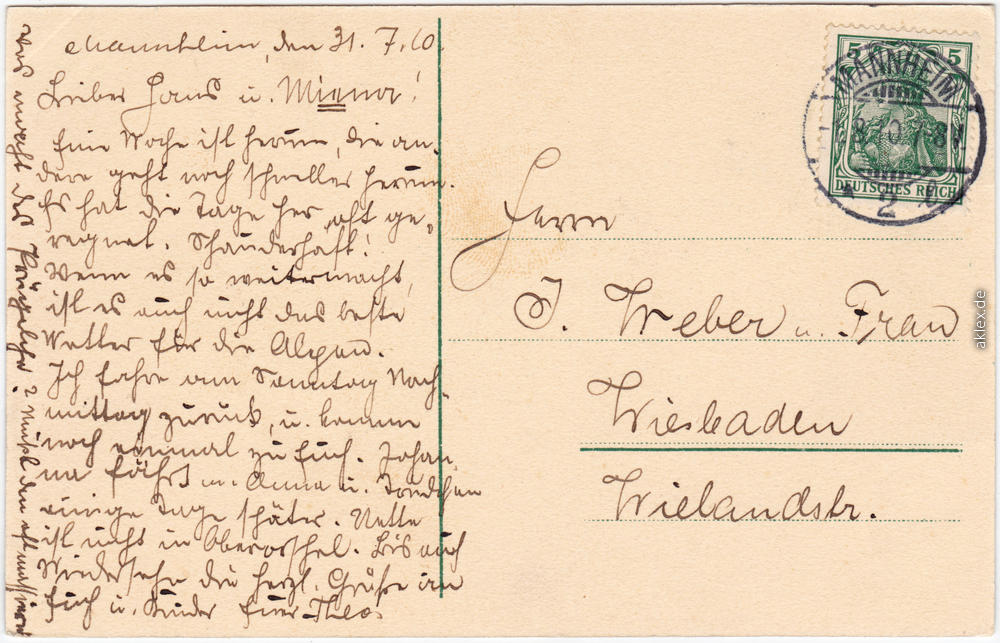 Mannheim, den 31. 7. 10.
Lieber Hans u. Miena!
Eine Woche ist herum, die an-
dere geht noch schneller herum.
Es hat die Tage her oft ge-
regnet. Schauderhaft!
Wenn es so weitermacht,
ist es auch nicht das beste
Wetter für die Alpen.
Ich fahre am Sonntag Nach-
mittag zurück, u. komme
noch einmal zu Euch. Johan-
na fährt m. Anna u.
einige Tage später. Nette
ist nicht in Oberursel. Bis auf
Wiedersehn die herzl. Grüße an
Euch u. Kinder Euer Theo.
Was macht das
Herrn
J. Weber u. Frau
Wiesbaden
Wielandstr.
5 5
DEUTSCHES REICH
MANNHEIM
2
aklex.de